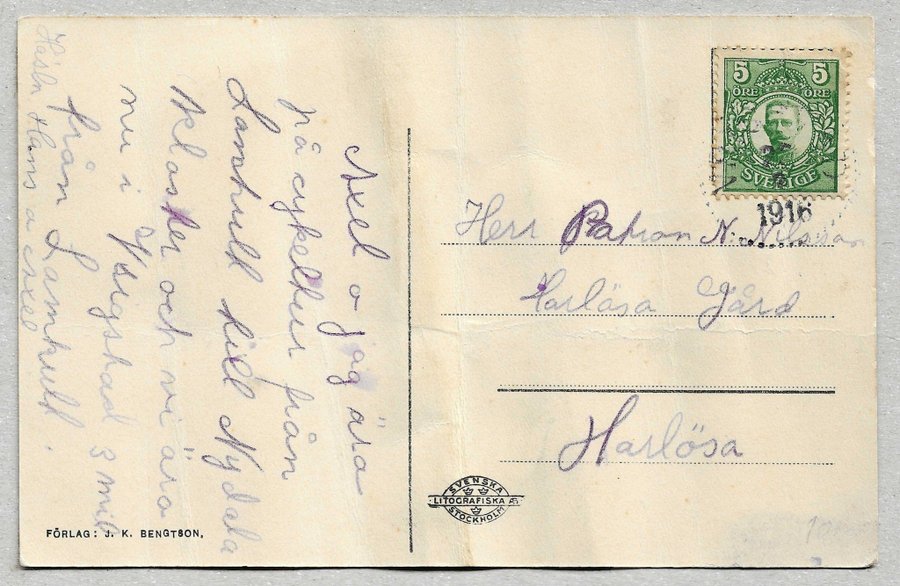 Axel o jag ära
på cykeltur från
Lamhult till Nydala
kloster och vi ära
nu i Vrigstad 3 mil
från Lamhult.
Hans a Axel
5 5
ÖRE ÖRE
SVERIGE
1916
Herr Patron N. Nilsson
Harlösa Gård
Harlösa
SVENSKA
LITOGRAFISKA AB
STOCKHOLM
FÖRLAG: J. K. BENGTSON,